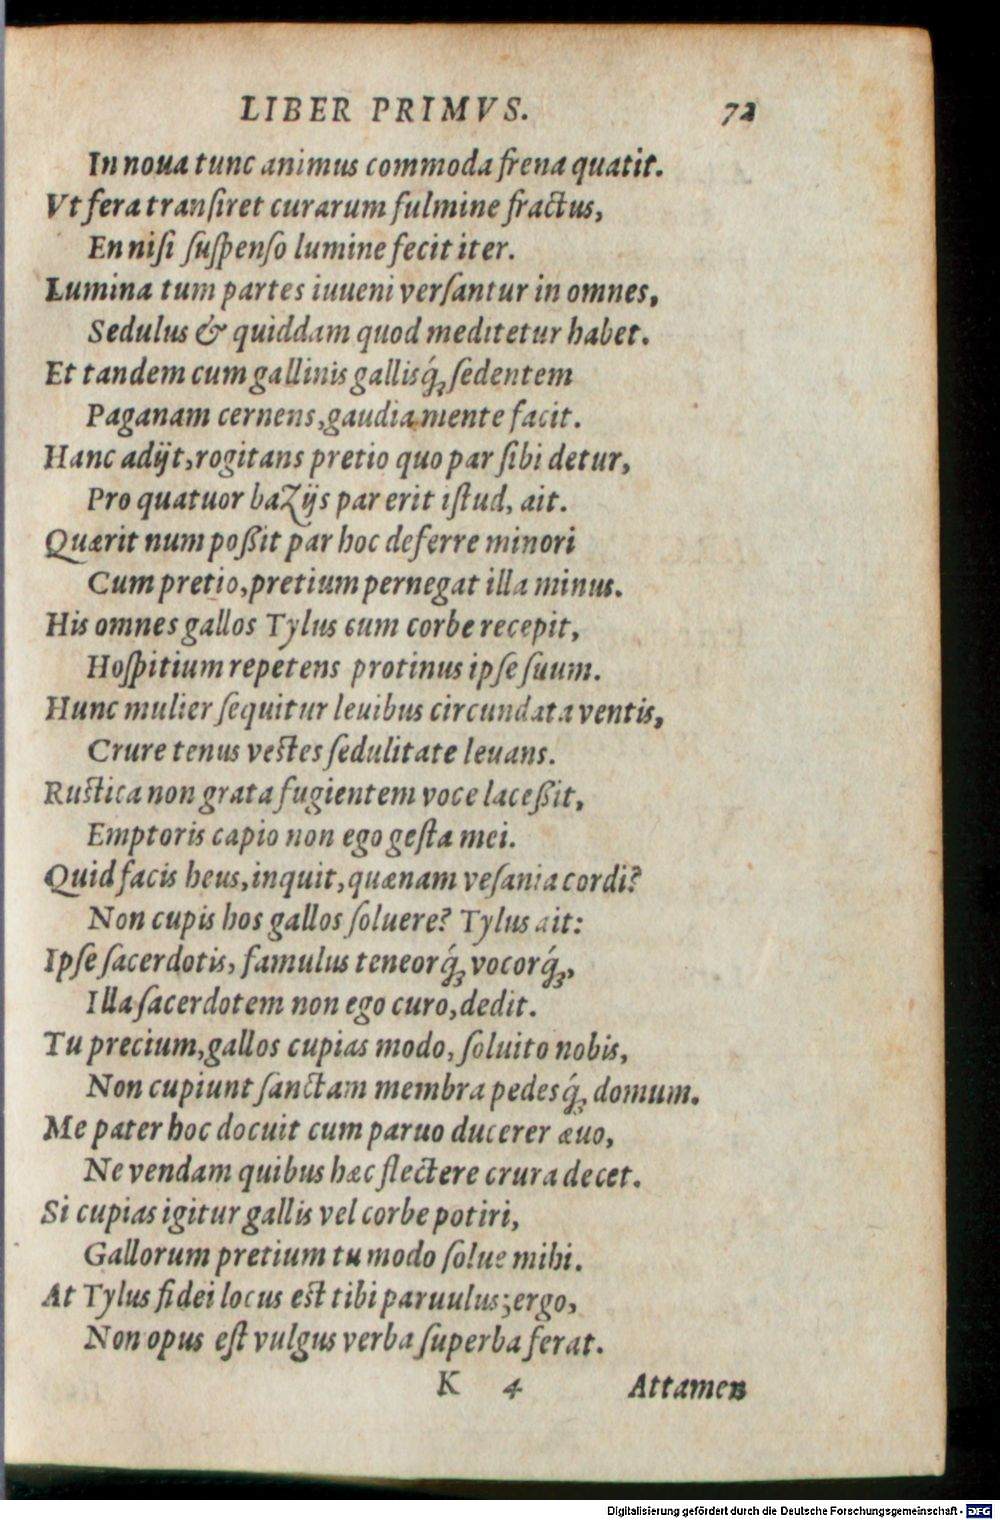 LIBER PRIMVS. 72
In noua tunc animus commoda frena quatit.
Vt fera transiret curarum fulmine fractus,
En nisi suspenso lumine fecit iter.
Lumina tum partes iuueni versantur in omnes,
Sedulus & quiddam quod meditetur habet.
Et tandem cum gallinis gallisq́; sedentem
Paganam cernens, gaudia mente facit.
Hanc adijt, rogitans pretio quo par sibi detur,
Pro quatuor bazijs par erit istud, ait.
Quærit num poßit par hoc deferre minori
Cum pretio, pretium pernegat illa minus.
His omnes gallos Tylus cum corbe recepit,
Hospitium repetens protinus ipse suum.
Hunc mulier sequitur leuibus circundata ventis,
Crure tenus vestes sedulitate leuans.
Rustica non grata fugientem voce laceßit,
Emptoris capio non ego gesta mei.
Quid facis heus, inquit, quænam vesania cordi?
Non cupis hos gallos soluere? Tylus ait:
Ipse sacerdotis, famulus teneorq́; vocorq́;,
Illa sacerdotem non ego curo, dedit.
Tu precium, gallos cupias modo, soluito nobis,
Non cupiunt sanctam membra pedesq́; domum.
Me pater hoc docuit cum paruo ducerer æuo,
Ne vendam quibus hæc flectere crura decet.
Si cupias igitur gallis vel corbe potiri,
Gallorum pretium tu modo solue mihi.
At Tylus fidei locus est tibi paruulus; ergo,
Non opus est vulgus verba superba ferat.
K 4 Attamen
Digitalisierung gefördert durch die Deutsche Forschungsgemeinschaft - DFG